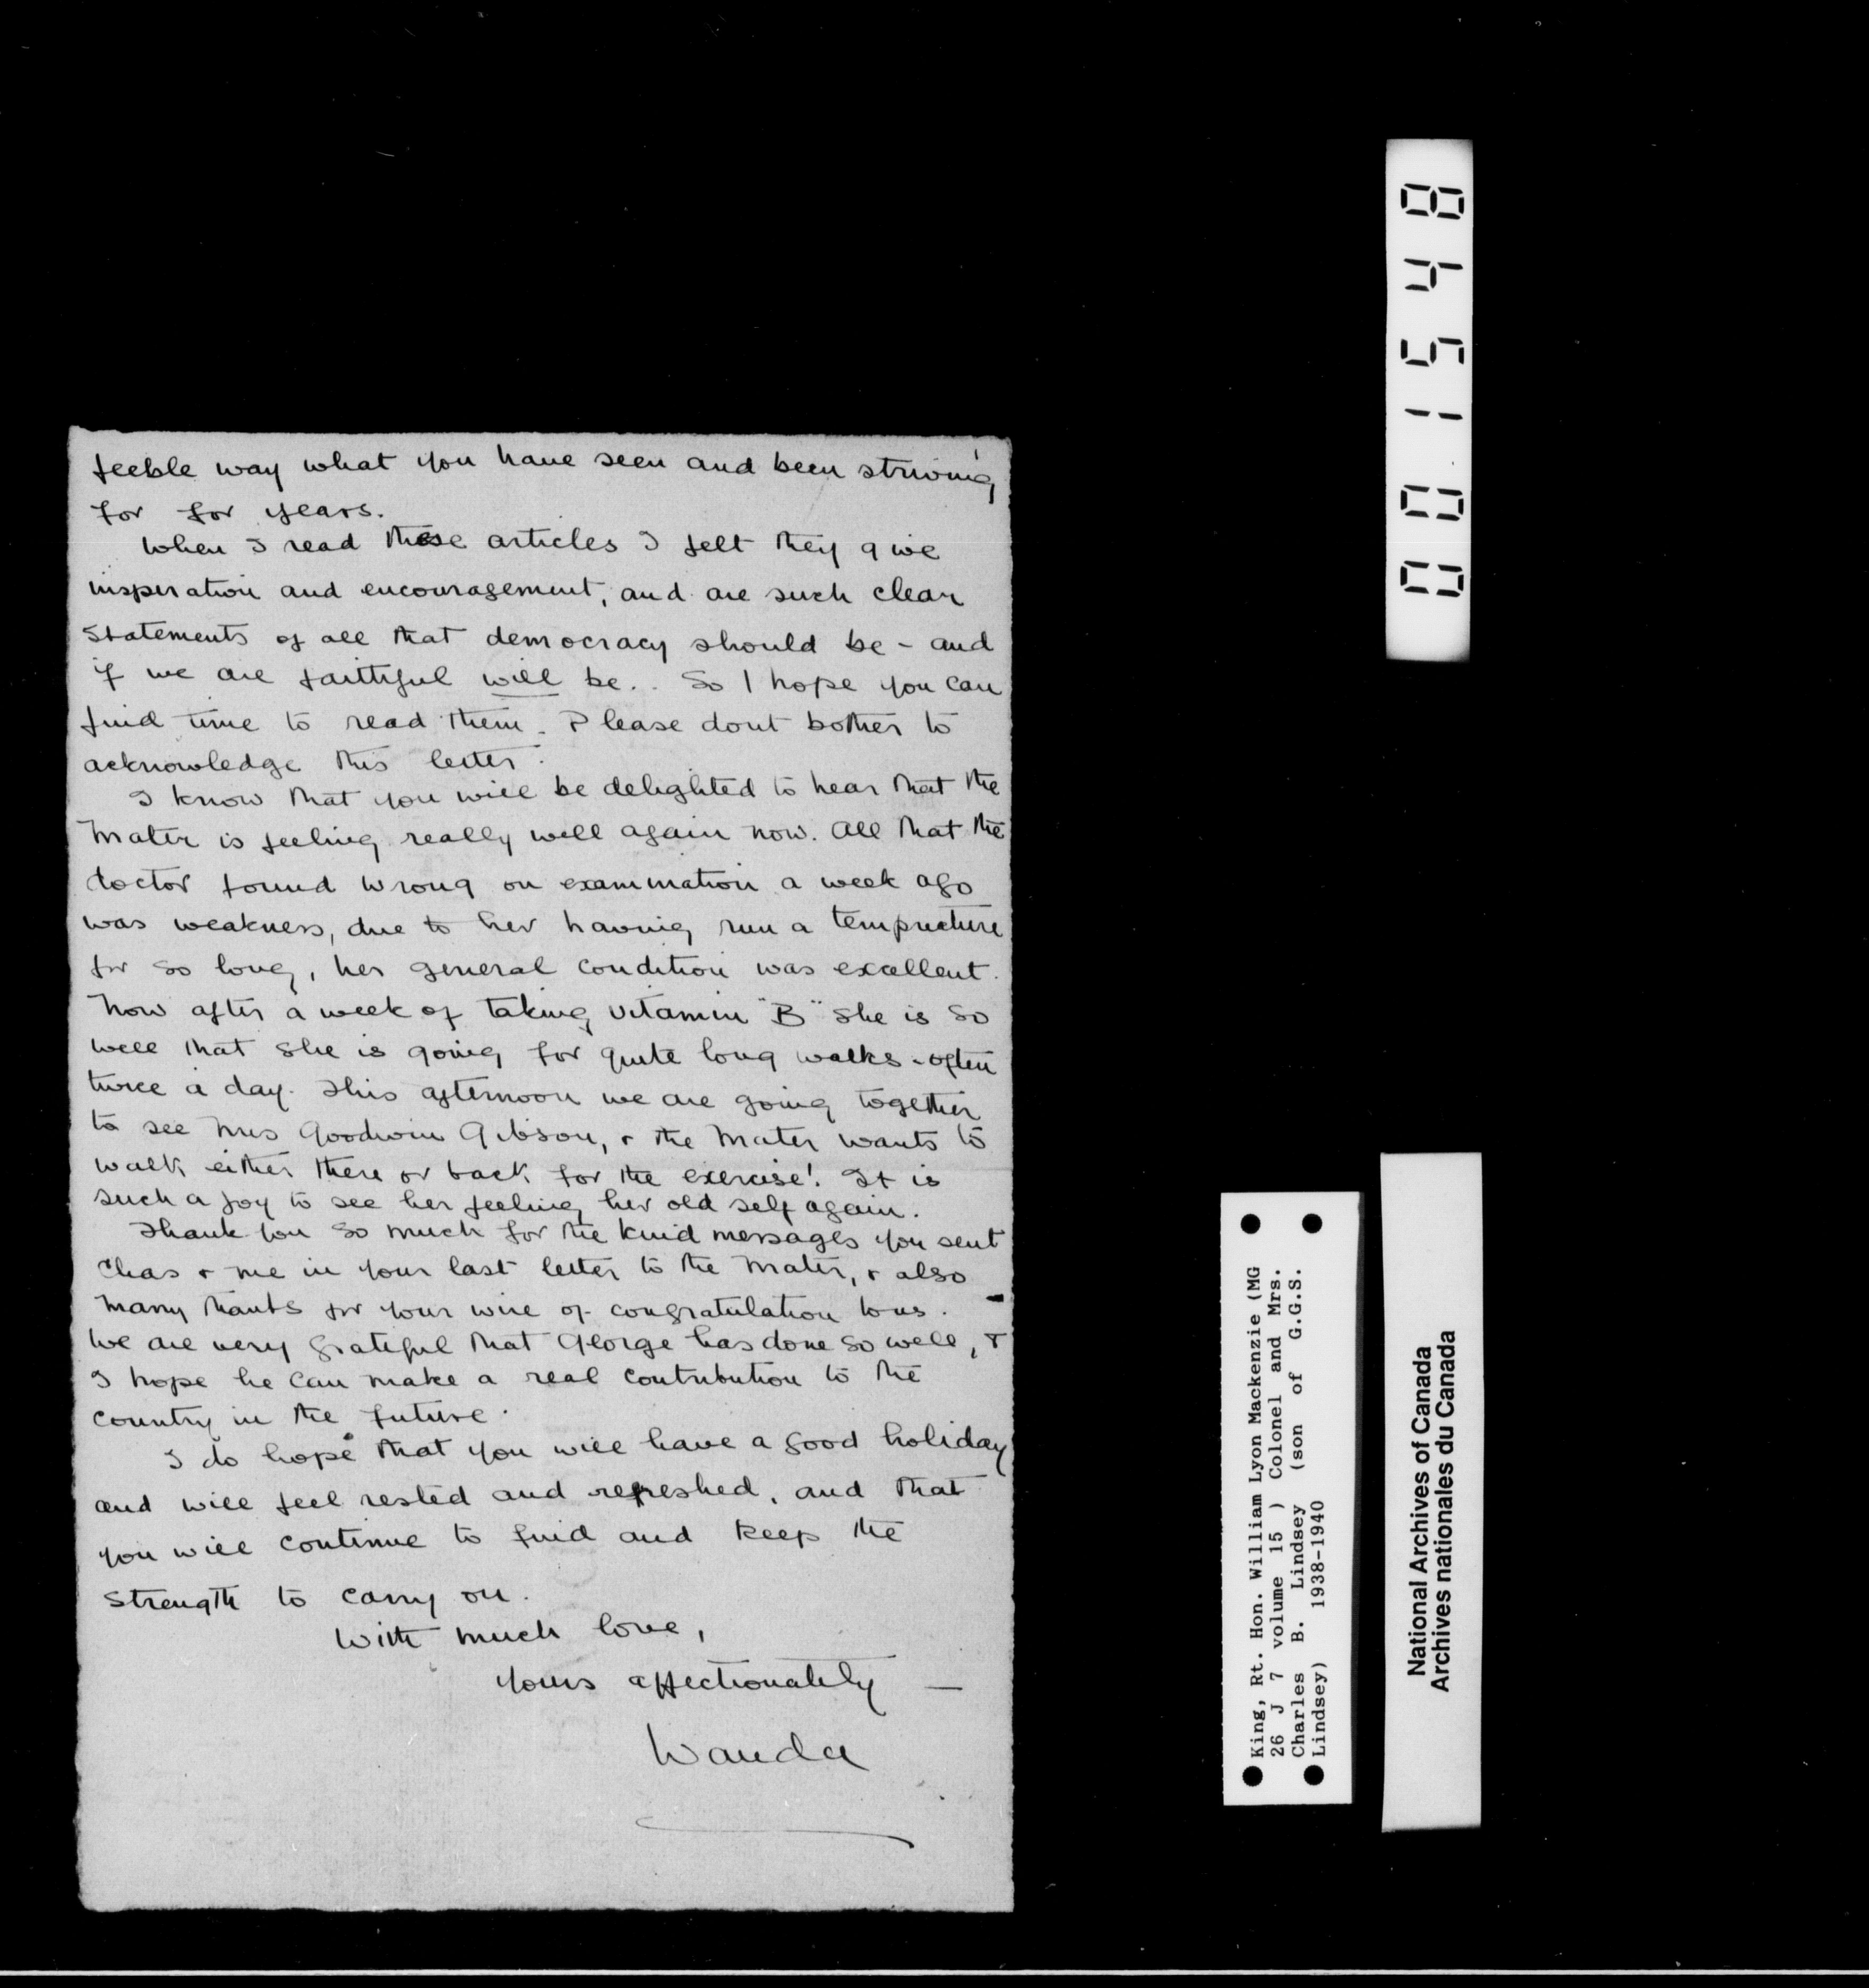 feeble way what you have seen and been striving
for for years.
When I read these articles I felt they give
insperation and encouragement, and are such clear
statements of all that democracy should be - and
if we are faithful will be. So I hope you can
find time to read them. Please dont bother to
acknowledge this letter.
I know that you will be delighted to hear that the
Mater is feeling really well again now. All that the
doctor found wrong on examination a week ago
was weakness, due to her having run a tempreture
for so long, her general condition was excellent.
Now after a week of taking vitamin "B" she is so
well that she is going for quite long walks - often
twice a day. This afternoon we are going together
to see Mrs Goodwin Gibson, & the Mater wants to
walk either there or back for the exercise! It is
such a joy to see her feeling her old self again.
Thank you so much for the kind messages you sent
Chas & me in your last letter to the Mater, & also
many thanks for your wire of congratulation to us.
We are very grateful that George has done so well, &
I hope he can make a real contribution to the
country in the future.
I do hope that you will have a good holiday
and will feel rested and refreshed, and that
you will continue to find and keep the
strength to carry on.
With much love,
Yours affectionately —
Wanda
001548
King, Rt. Hon. William Lyon Mackenzie (MG
26 J 7 volume 15 ) Colonel and Mrs.
Charles B. Lindsey (son of G.G.S.
Lindsey) 1938-1940
National Archives of Canada
Archives nationales du Canada